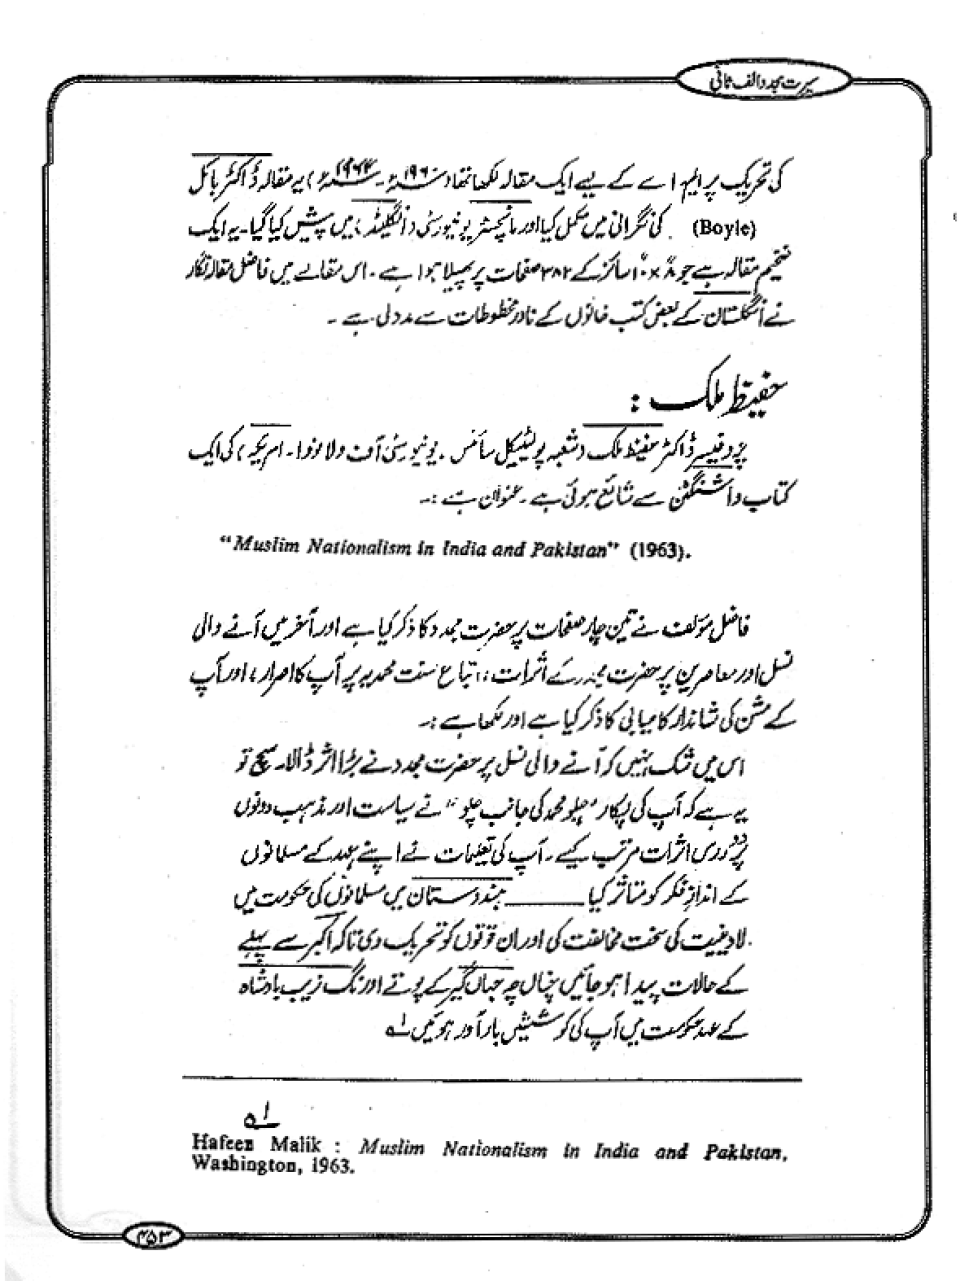 سیرت مجدد الف ثانی
کی تحریک پر ایم اے کے لیے ایک مقالہ لکھا تھا (۱۹۶۰ء۔۱۹۶۲ء) یہ مقالہ ڈاکٹر بائل
(Boyle) کی نگرانی میں مکمل کیا اور مانچسٹر یونیورسٹی (انگلینڈ) میں پیش کیا گیا۔ یہ ایک
ضخیم مقالہ ہے جو ۸×۱۰ سائز کے ۳۸۲ صفحات پر پھیلا ہوا ہے۔ اس مقالے میں فاضل مقالہ نگار
نے انگلستان کے بعض کتب خانوں کے نادر مخطوطات سے مدد لی ہے۔
حفیظ ملک :
پروفیسر ڈاکٹر حفیظ ملک (شعبہ پولٹیکل سائنس۔ یونیورسٹی آف ولانووا۔ امریکہ) کی ایک
کتاب واشنگٹن سے شائع ہوئی ہے۔ عنوان ہے :۔
"Muslim Nationalism in India and Pakistan" (1963).
فاضل مؤلف نے تین چار صفحات پر حضرت مجدد کا ذکر کیا ہے اور آخر میں آنے والی
نسل اور معاصرین پر حضرت مجدد کے اثرات، اتباع سنت محمدیہ پر آپ کا اصرار، اور آپ
کے مشن کی شاندار کامیابی کا ذکر کیا ہے اور لکھا ہے :۔
اس میں شک نہیں کہ آنے والی نسل پر حضرت مجدد نے بڑا اثر ڈالا۔ سچ تو
یہ ہے کہ آپ کی پکار "چلو محمد کی جانب چلو" نے سیاست اور مذہب دونوں
پر دوررس اثرات مرتب کیے۔ آپ کی تعلیمات نے اپنے عہد کے مسلمانوں
کے انداز فکر کو متاثر کیا ــــــــــ ہندوستان میں مسلمانوں کی حکومت میں
لادینیت کی سخت مخالفت کی اور ان قوتوں کو تحریک دی تاکہ اکبر سے پہلے
کے حالات پیدا ہو جائیں چناں چہ جہاں گیر کے پوتے اورنگ زیب بادشاہ
کے عہد حکومت میں آپ کی کوششیں بارآور ہوئیں لہ
لہ
Hafeen Malik : Muslim Nationalism in India and Pakistan,
Washington, 1963.
۴۵۳